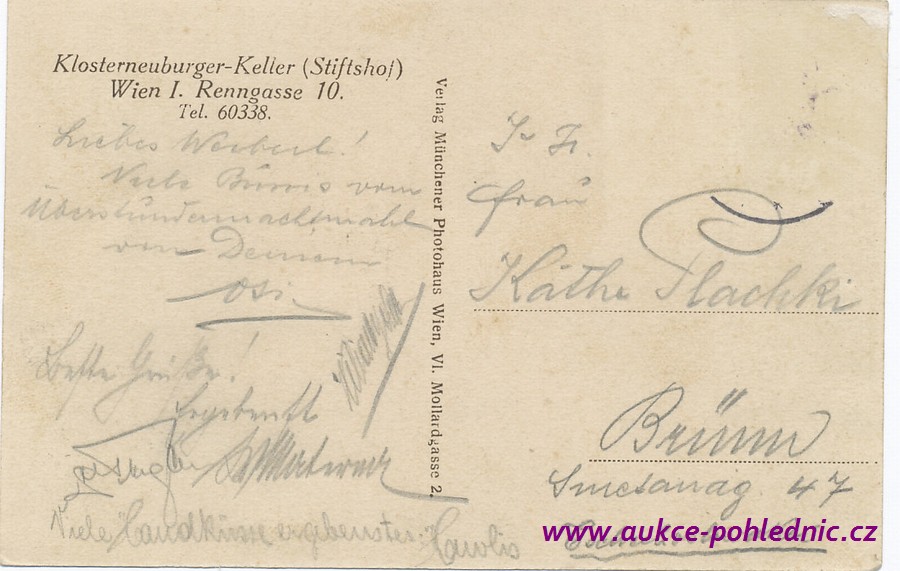 Klosterneuburger-Keller (Stiftshof)
Wien I. Renngasse 10.
Tel. 60338.
Liebes Weiberl!
Viele Bussis vom
Überstundennachtmahl
von Deinem
Osi
Beste Grüße!
Ergebenst
Viele Handküsse ergebenster
Verlag Münchener Photohaus Wien, VI. Mollardgasse 2.
Frau
Käthe Plachki
Brünn
Smetanag 47
www.aukce-pohlednic.cz